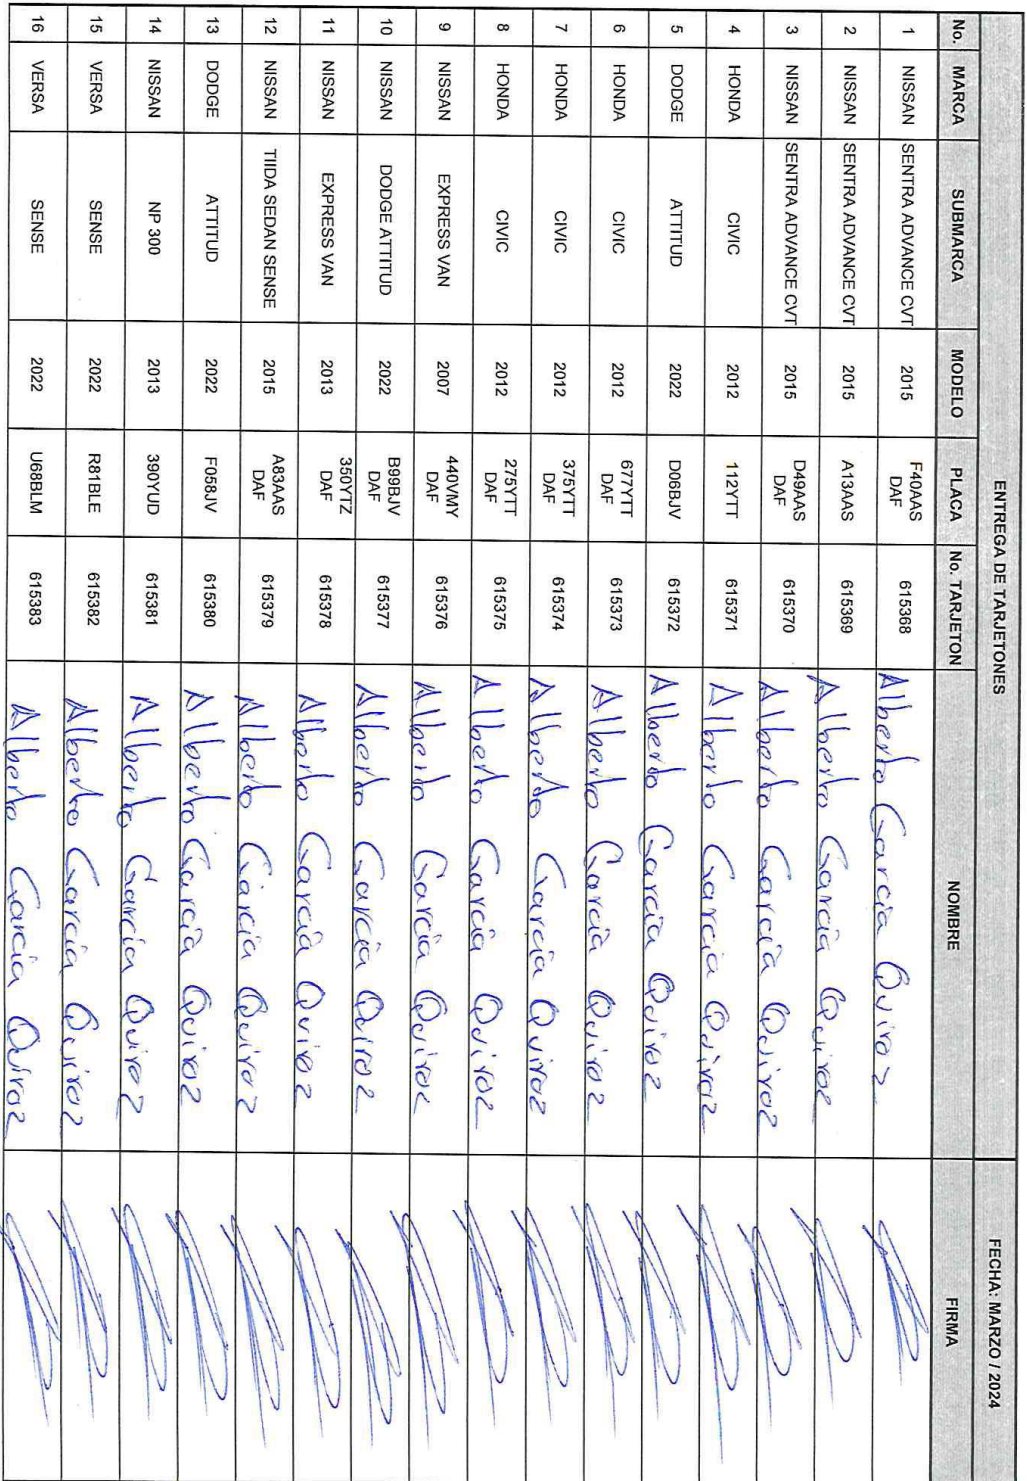 ENTREGA DE TARJETONES FECHA: MARZO / 2024
No. MARCA SUBMARCA MODELO PLACA No. TARJETON NOMBRE FIRMA
1 NISSAN SENTRA ADVANCE CVT 2015 F40AAS DAF 615368 Alberto Garcia Quiroz
2 NISSAN SENTRA ADVANCE CVT 2015 A13AAS 615369 Alberto Garcia Quiroz
3 NISSAN SENTRA ADVANCE CVT 2015 D49AAS DAF 615370 Alberto Garcia Quiroz
4 HONDA CIVIC 2012 112YTT 615371 Alberto Garcia Quiroz
5 DODGE ATTITUD 2022 D06BJV 615372 Alberto Garcia Quiroz
6 HONDA CIVIC 2012 677YTT DAF 615373 Alberto Garcia Quiroz
7 HONDA CIVIC 2012 375YTT DAF 615374 Alberto Garcia Quiroz
8 HONDA CIVIC 2012 275YTT DAF 615375 Alberto Garcia Quiroz
9 NISSAN EXPRESS VAN 2007 440VMY DAF 615376 Alberto Garcia Quiroz
10 NISSAN DODGE ATTITUD 2022 B99BJV DAF 615377 Alberto Garcia Quiroz
11 NISSAN EXPRESS VAN 2013 350YTZ DAF 615378 Alberto Garcia Quiroz
12 NISSAN TIIDA SEDAN SENSE 2015 A83AAS DAF 615379 Alberto Garcia Quiroz
13 DODGE ATTITUD 2022 F058JV 615380 Alberto Garcia Quiroz
14 NISSAN NP 300 2013 390YUD 615381 Alberto Garcia Quiroz
15 VERSA SENSE 2022 R81BLE 615382 Alberto Garcia Quiroz
16 VERSA SENSE 2022 U68BLM 615383 Alberto Garcia Quiroz